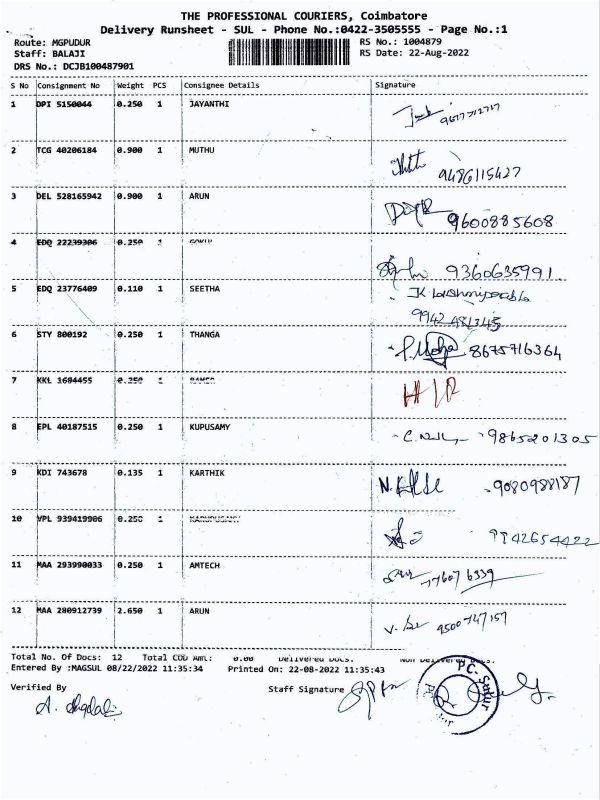 THE PROFESSIONAL COURIERS, Coimbatore
Delivery Runsheet - SUL - Phone No.:0422-3505555 - Page No.:1
Route: MGPUDUR RS No.: 1004879
Staff: BALAJI RS Date: 22-Aug-2022
DRS No.: DCJB100487901
S No Consignment No Weight PCS Consignee Details Signature
1 DPI 5150044 0.250 1 JAYANTHI
2 TCG 40206184 0.900 1 MUTHU 9486115427
3 DEL 528165942 0.900 1 ARUN 9600885608
4 EDQ 22239306 0.250 1 GOKUL 9360635991
5 EDQ 23776409 0.110 1 SEETHA
9942481345
6 STY 800192 0.250 1 THANGA 8675716364
7 KKL 1684455 0.250 1
8 EPL 40187515 0.250 1 KUPUSAMY 9865201305
9 KDI 743678 0.135 1 KARTHIK 9080988187
10 VPL 939419906 0.250 1 KARUPUSAMY 9942654422
11 MAA 293990033 0.250 1 AMTECH
12 MAA 280912739 2.650 1 ARUN 9500747157
Total No. Of Docs: 12 Total COD Amt.: 0.00 Delivered Docs. Non Delivered Docs.
Entered By :MAGSUL 08/22/2022 11:35:34 Printed On: 22-08-2022 11:35:43
Verified By Staff Signature